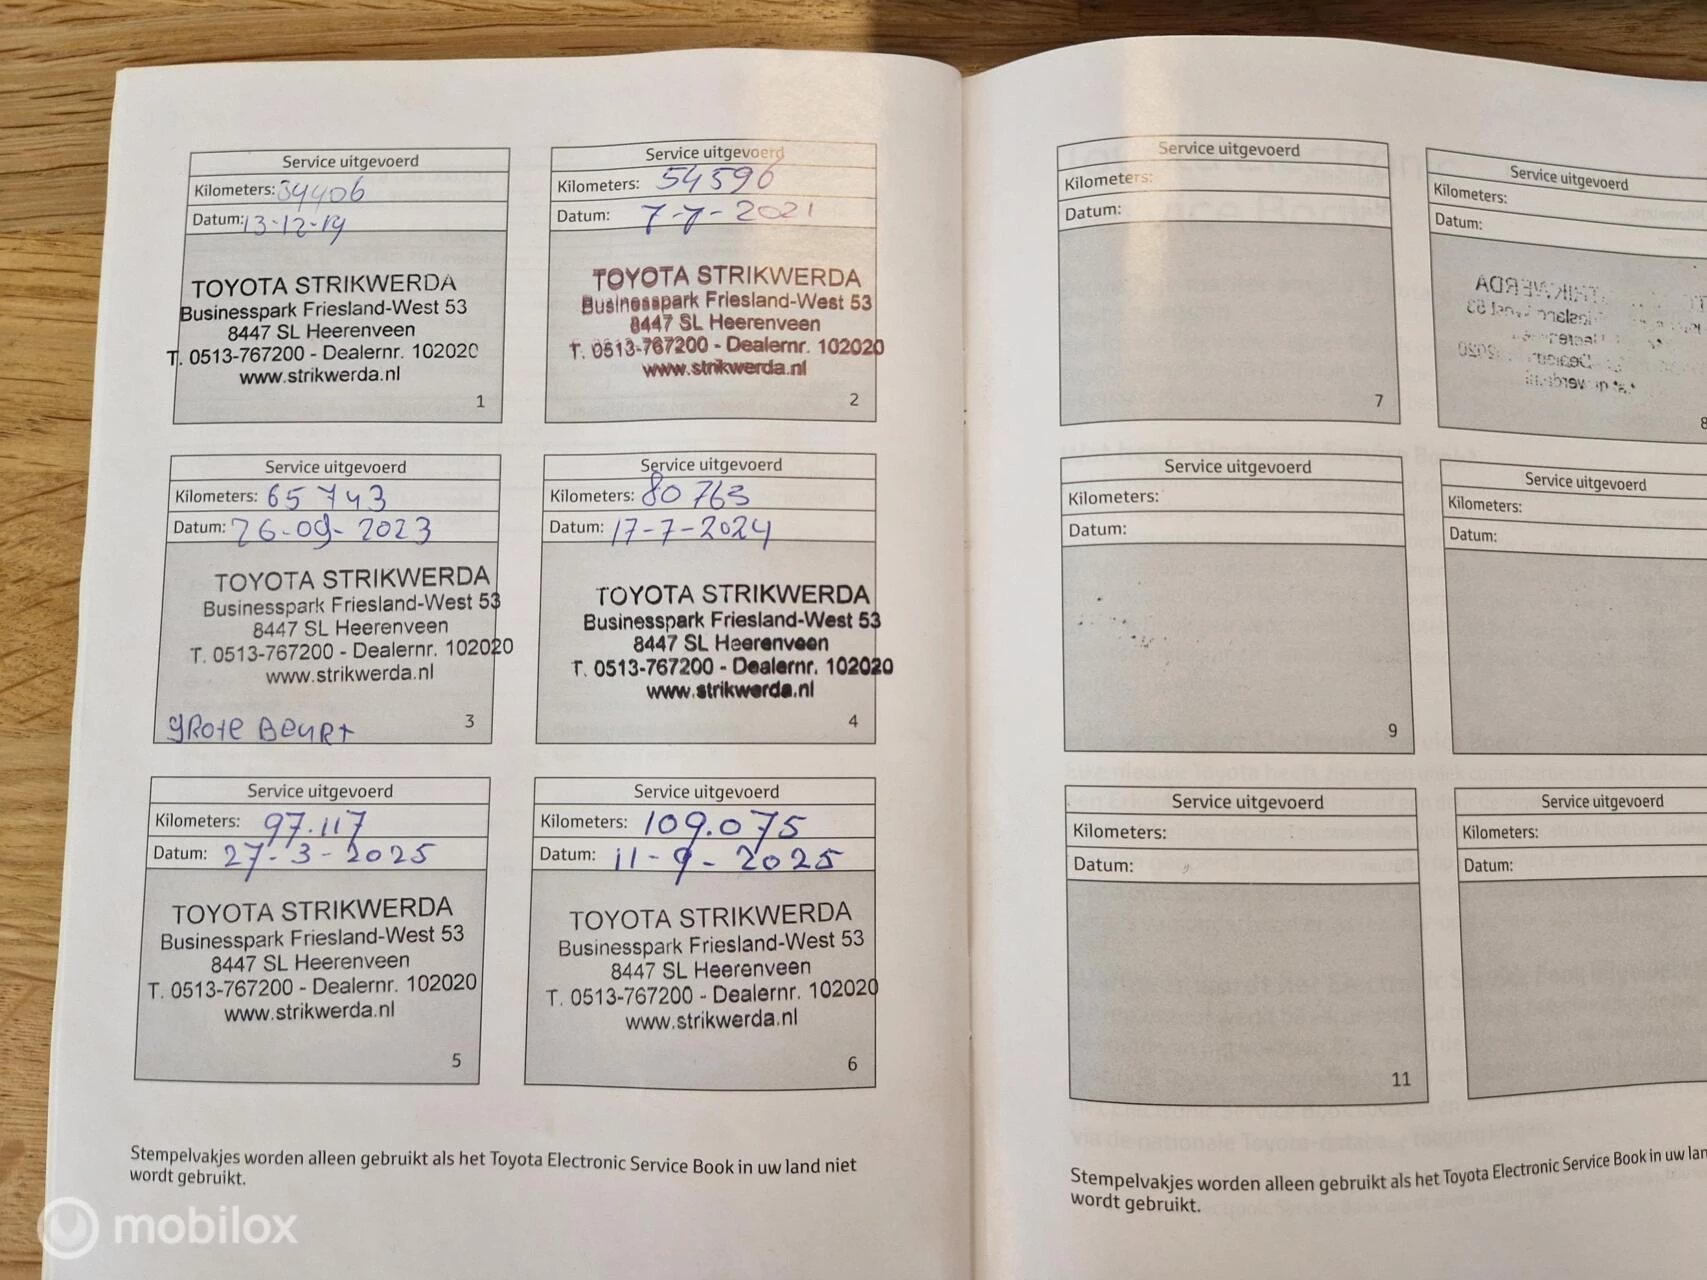 Service uitgevoerd
Kilometers: 34406
Datum: 13-12-19
TOYOTA STRIKWERDA
Businesspark Friesland-West 53
8447 SL Heerenveen
T. 0513-767200 - Dealernr. 102020
www.strikwerda.nl
1
Service uitgevoerd
Kilometers: 54596
Datum: 7-7-2021
TOYOTA STRIKWERDA
Businesspark Friesland-West 53
8447 SL Heerenveen
T. 0513-767200 - Dealernr. 102020
www.strikwerda.nl
2
Service uitgevoerd
Kilometers: 65743
Datum: 26-09-2023
TOYOTA STRIKWERDA
Businesspark Friesland-West 53
8447 SL Heerenveen
T. 0513-767200 - Dealernr. 102020
www.strikwerda.nl
grote Beurt
3
Service uitgevoerd
Kilometers: 80763
Datum: 17-7-2024
TOYOTA STRIKWERDA
Businesspark Friesland-West 53
8447 SL Heerenveen
T. 0513-767200 - Dealernr. 102020
www.strikwerda.nl
4
Service uitgevoerd
Kilometers: 97.117
Datum: 27-3-2025
TOYOTA STRIKWERDA
Businesspark Friesland-West 53
8447 SL Heerenveen
T. 0513-767200 - Dealernr. 102020
www.strikwerda.nl
5
Service uitgevoerd
Kilometers: 109.075
Datum: 11-9-2025
TOYOTA STRIKWERDA
Businesspark Friesland-West 53
8447 SL Heerenveen
T. 0513-767200 - Dealernr. 102020
www.strikwerda.nl
6
Stempelvakjes worden alleen gebruikt als het Toyota Electronic Service Book in uw land niet
wordt gebruikt.
Service uitgevoerd
Kilometers:
Datum:
7
Service uitgevoerd
Kilometers:
Datum:
8
Service uitgevoerd
Kilometers:
Datum:
9
Service uitgevoerd
Kilometers:
Datum:
Service uitgevoerd
Kilometers:
Datum:
11
Service uitgevoerd
Kilometers:
Datum:
Stempelvakjes worden alleen gebruikt als het Toyota Electronic Service Book in uw lan
wordt gebruikt.
mobilox